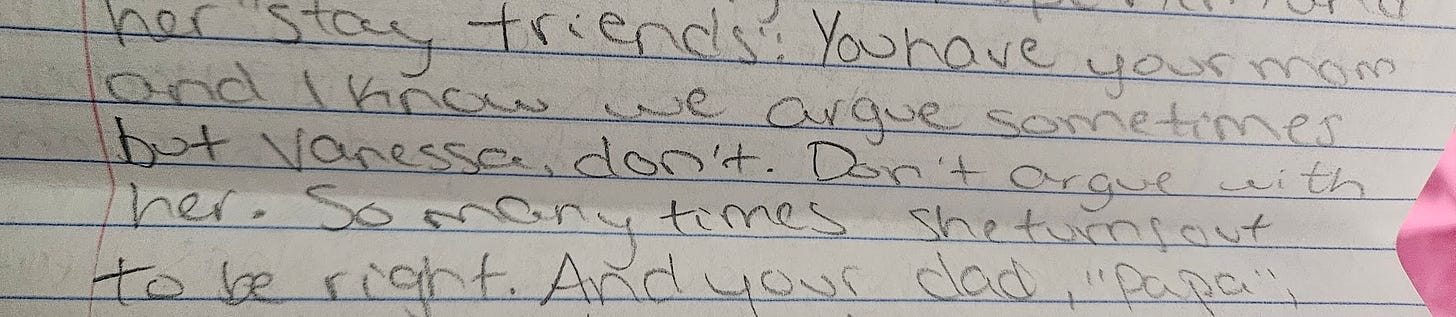 her "stay friends". You have your mom
and I know we argue sometimes
but Vanessa, don't. Don't argue with
her. So many times she turns out
to be right. And your dad, "Papa",